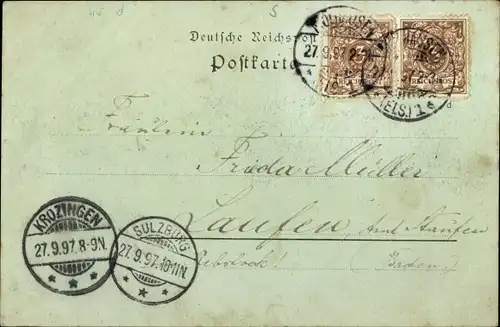 Deutsche Reichspost
Postkarte
27.9.97
(ELS.)
Fräulein
Frieda Müller
Laufen, Amt Staufen
Rebstock! (Baden)
KROZINGEN
27.9.97.8-9N.
SULZBURG
27.9.97.10-11N.